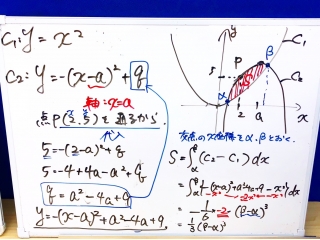 C₁: y = x²
C₂: y = -(x-a)² + q
軸: x=a
点P(2,5)を通るから
代入
5 = -(2-a)² + q
5 = -4+4a-a² + q
q = a²-4a+9
y = -(x-a)² + a²-4a+9
y
β
C₁
P
C₂
5
α
2
a
x
交点のx座標をα, βとおく
S = ∫_α^β (C₂ - C₁) dx
= ∫_α^β {-(x-a)² + a²-4a+9 - x²} dx
-2x²
= -1/6 · -2 (β-α)³
= 1/3 (β-α)³